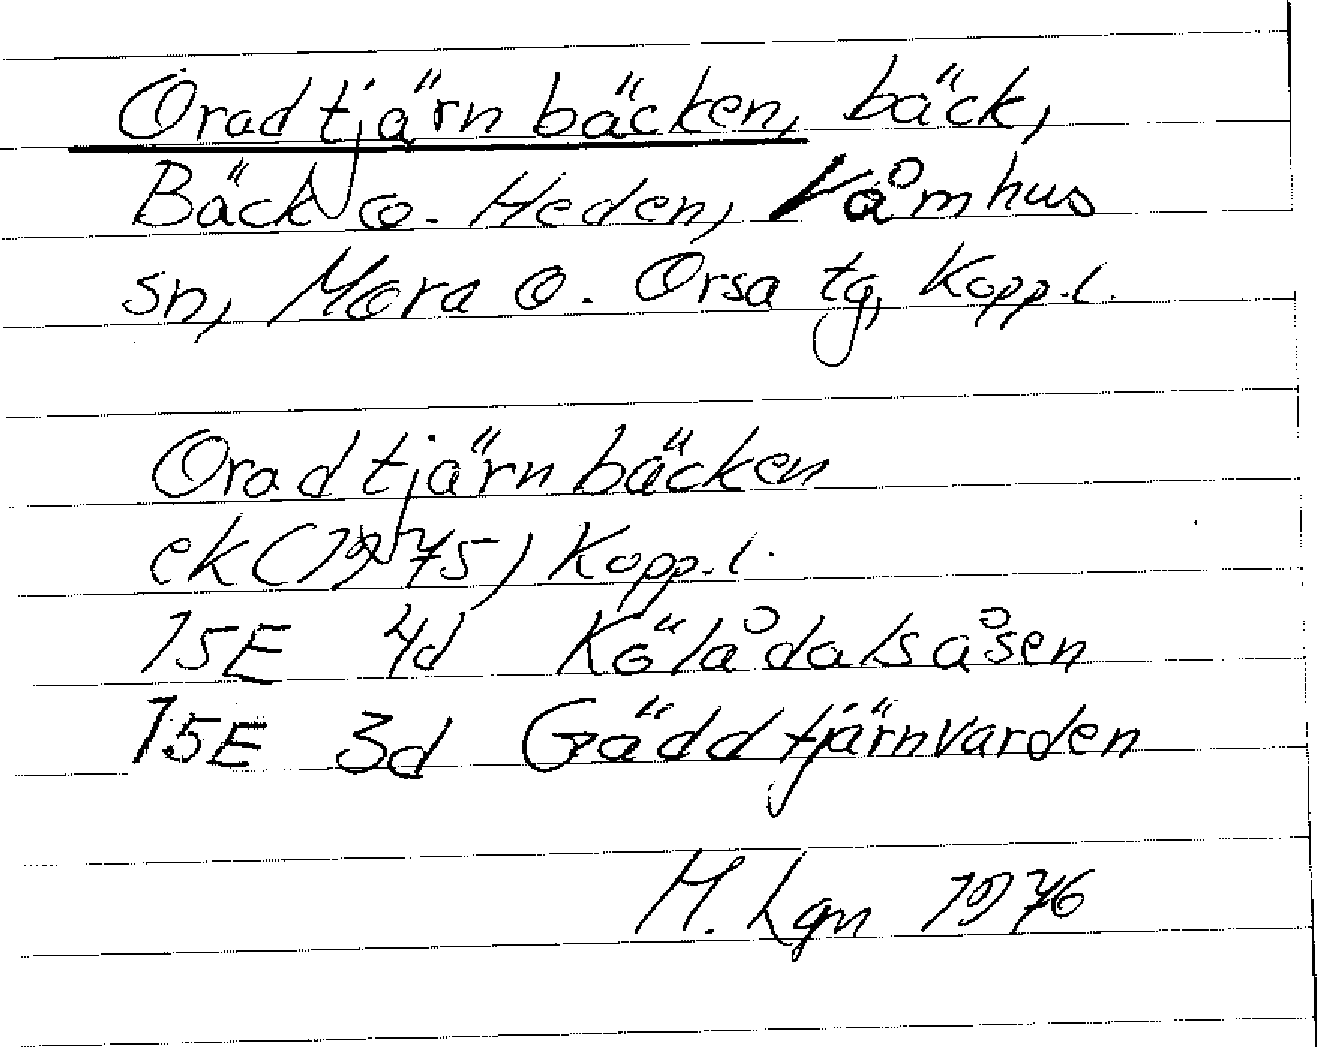 Oradtjärnbäcken, bäck,
Bäck o. Heden, Våmhus
sn, Mora o. Orsa tg, Kopp.l.
Oradtjärnbäcken
ek (1975) Kopp.l.
15E 4d Kölådalsåsen
15E 3d Gäddtjärnvarden
M. Lgn 1976